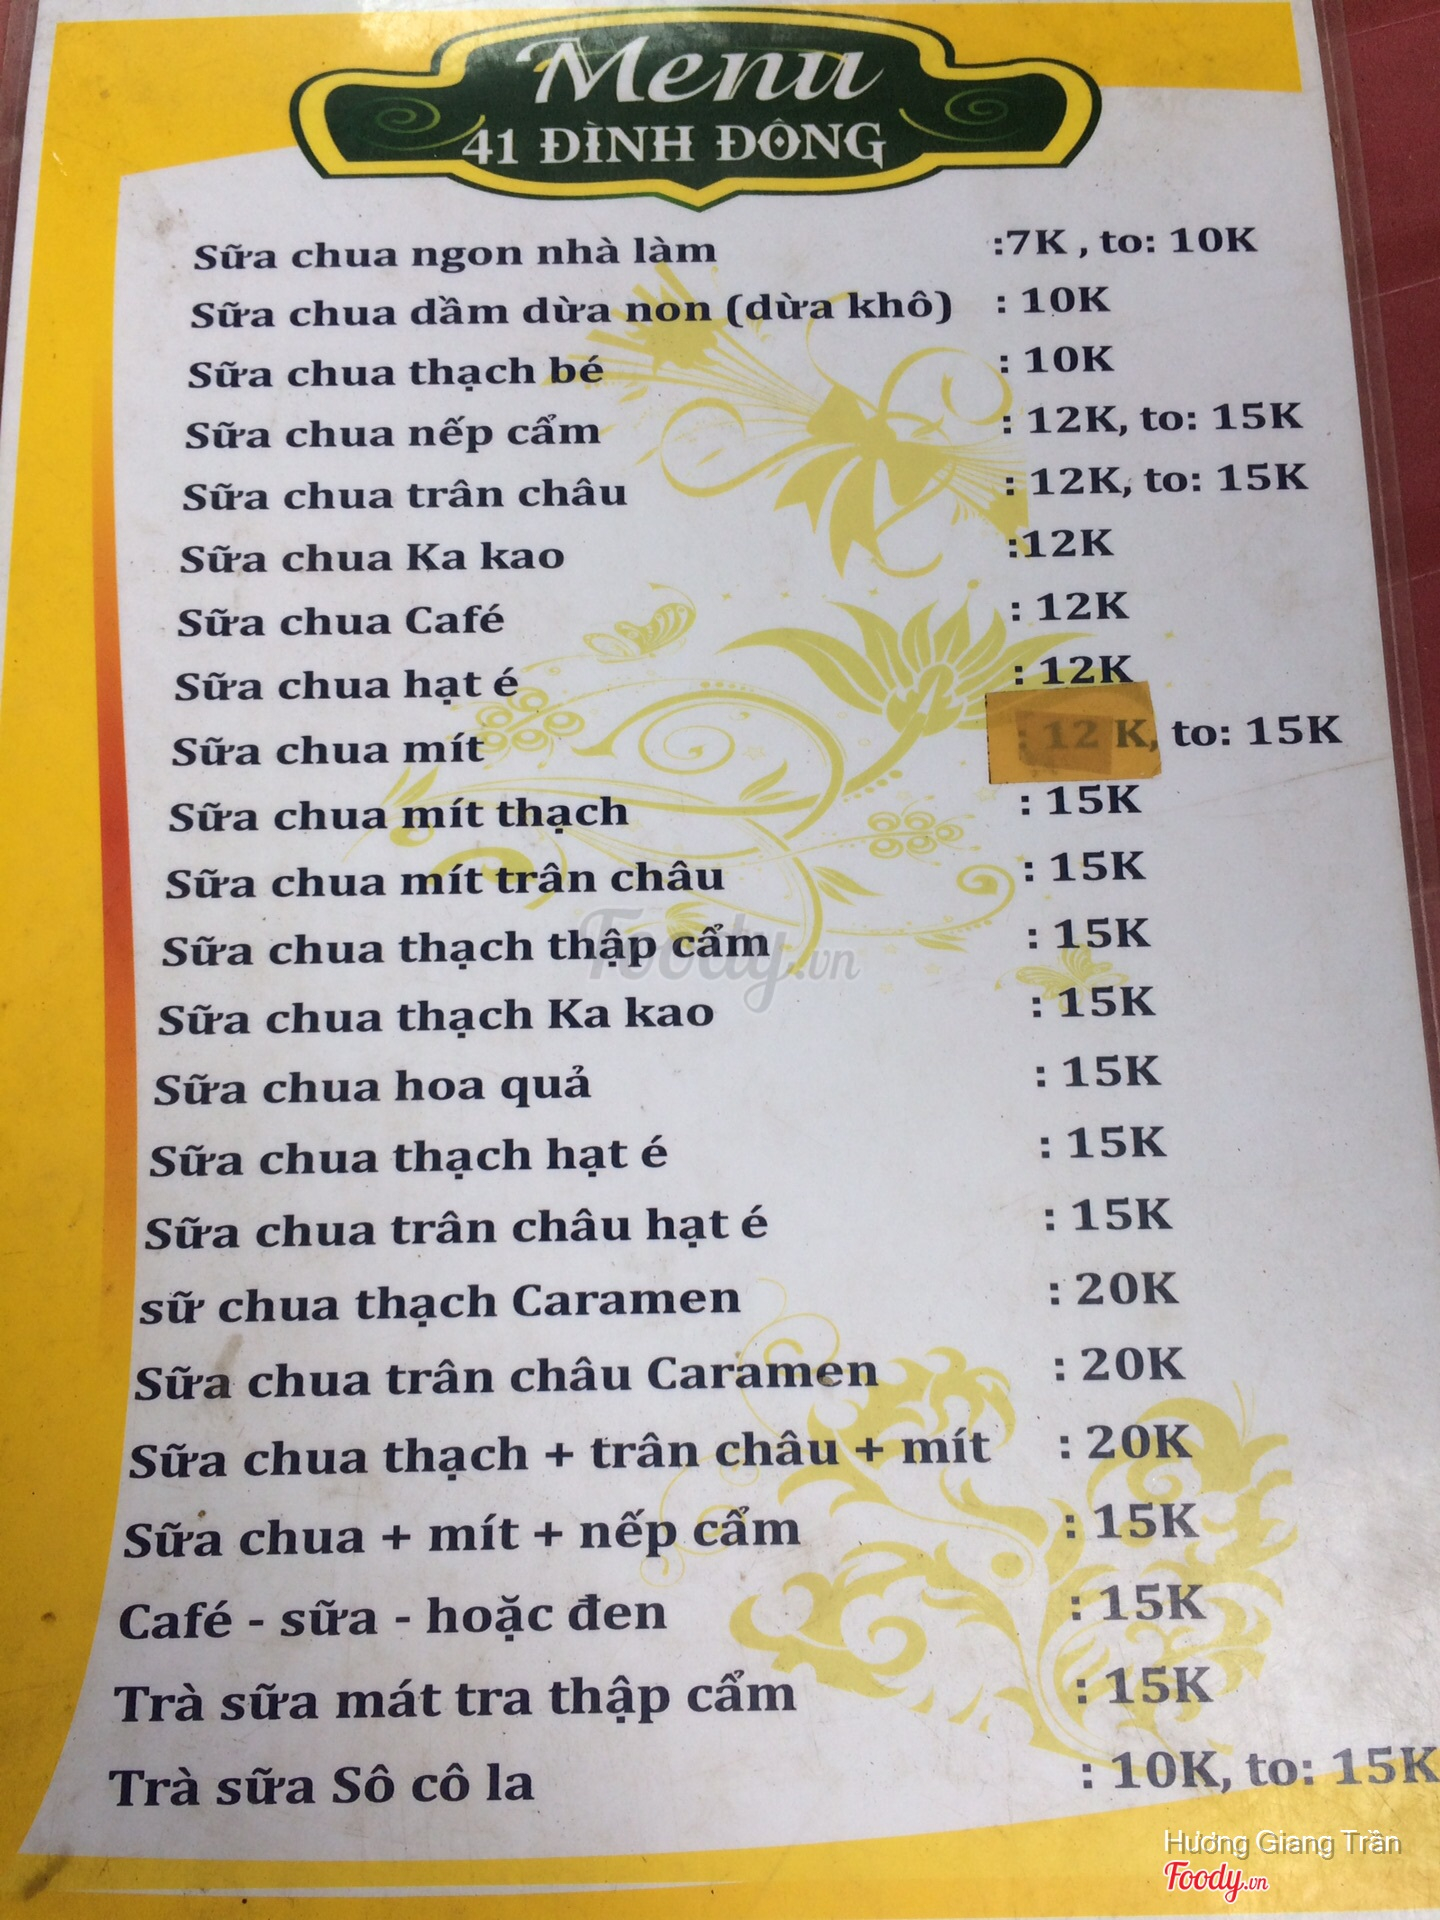 Menu
41 ĐÌNH ĐÔNG
Sữa chua ngon nhà làm :7K , to: 10K
Sữa chua dầm dừa non (dừa khô) : 10K
Sữa chua thạch bé : 10K
Sữa chua nếp cẩm : 12K, to: 15K
Sữa chua trân châu : 12K, to: 15K
Sữa chua Ka kao :12K
Sữa chua Café : 12K
Sữa chua hạt é : 12K
Sữa chua mít : 12 K, to: 15K
Sữa chua mít thạch : 15K
Sữa chua mít trân châu : 15K
Sữa chua thạch thập cẩm : 15K
Sữa chua thạch Ka kao : 15K
Sữa chua hoa quả : 15K
Sữa chua thạch hạt é : 15K
Sữa chua trân châu hạt é : 15K
sữ chua thạch Caramen : 20K
Sữa chua trân châu Caramen : 20K
Sữa chua thạch + trân châu + mít : 20K
Sữa chua + mít + nếp cẩm : 15K
Café - sữa - hoặc đen : 15K
Trà sữa mát tra thập cẩm : 15K
Trà sữa Sô cô la : 10K, to: 15K
Foody.vn
Hương Giang Trần
Foody.vn